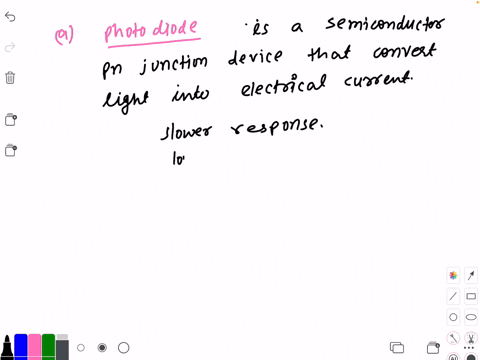 (a) photo diode is a semiconductor
pn junction device that convert
light into electrical current.
slower response.